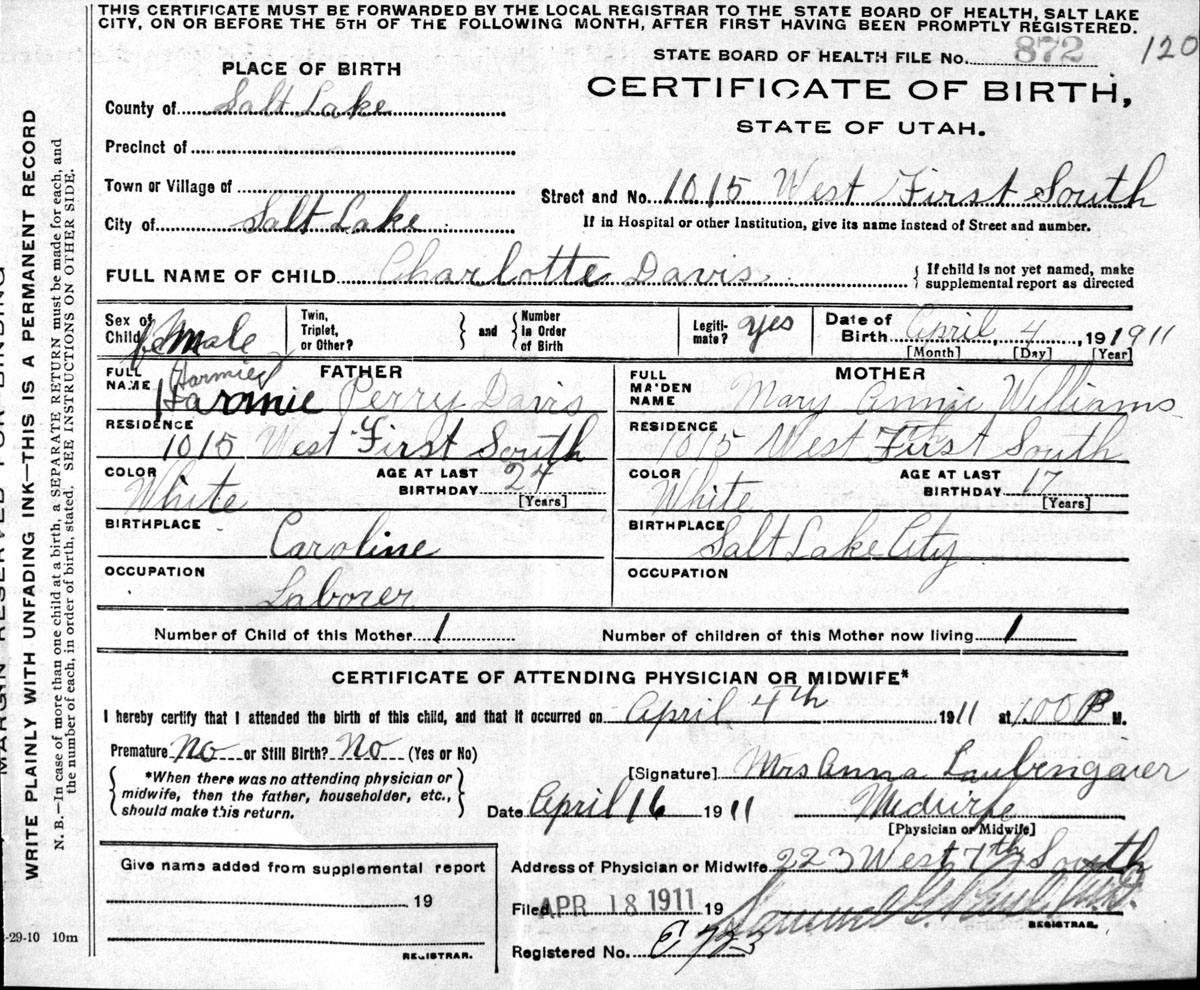 THIS CERTIFICATE MUST BE FORWARDED BY THE LOCAL REGISTRAR TO THE STATE BOARD OF HEALTH, SALT LAKE
CITY, ON OR BEFORE THE 5TH OF THE FOLLOWING MONTH, AFTER FIRST HAVING BEEN PROMPTLY REGISTERED.
STATE BOARD OF HEALTH FILE No. 872 120
PLACE OF BIRTH
CERTIFICATE OF BIRTH,
STATE OF UTAH.
County of Salt Lake
Precinct of
Town or Village of
Street and No. 1015 West First South
City of Salt Lake
If in Hospital or other Institution, give its name instead of Street and number.
FULL NAME OF CHILD Charlotte Davis
If child is not yet named, make
supplemental report as directed
Sex of
Child female
Twin,
Triplet,
or Other?
and
Number
in Order
of Birth
Legiti-
mate? yes
Date of
Birth April 4 191911
[Month] [Day] [Year]
FATHER
FULL
NAME Harmie Perry Davis
RESIDENCE
1015 West First South
COLOR
White
AGE AT LAST
BIRTHDAY 24
[Years]
BIRTHPLACE
Caroline
OCCUPATION
Laborer
MOTHER
FULL
MAIDEN
NAME Mary Annie Williams
RESIDENCE
1015 West First South
COLOR
White
AGE AT LAST
BIRTHDAY 17
[Years]
BIRTHPLACE
Salt Lake City
OCCUPATION
Number of Child of this Mother 1
Number of children of this Mother now living 1
CERTIFICATE OF ATTENDING PHYSICIAN OR MIDWIFE*
I hereby certify that I attended the birth of this child, and that it occurred on April 4th 1911 at 1.00 P M.
Premature No or Still Birth? No (Yes or No)
*When there was no attending physician or
midwife, then the father, householder, etc.,
should make this return.
[Signature] Mrs Anna Laubengaier
Date April 16 1911 Midwife
[Physician or Midwife]
Give name added from supplemental report
19
REGISTRAR.
Address of Physician or Midwife 223 West 7th South
Filed APR 18 1911 19
REGISTRAR.
Registered No.
-29-10 10m
WRITE PLAINLY WITH UNFADING INK—THIS IS A PERMANENT RECORD
N. B.—In case of more than one child at a birth, a SEPARATE RETURN must be made for each, and
the number of each, in order of birth, stated. SEE INSTRUCTIONS ON OTHER SIDE.